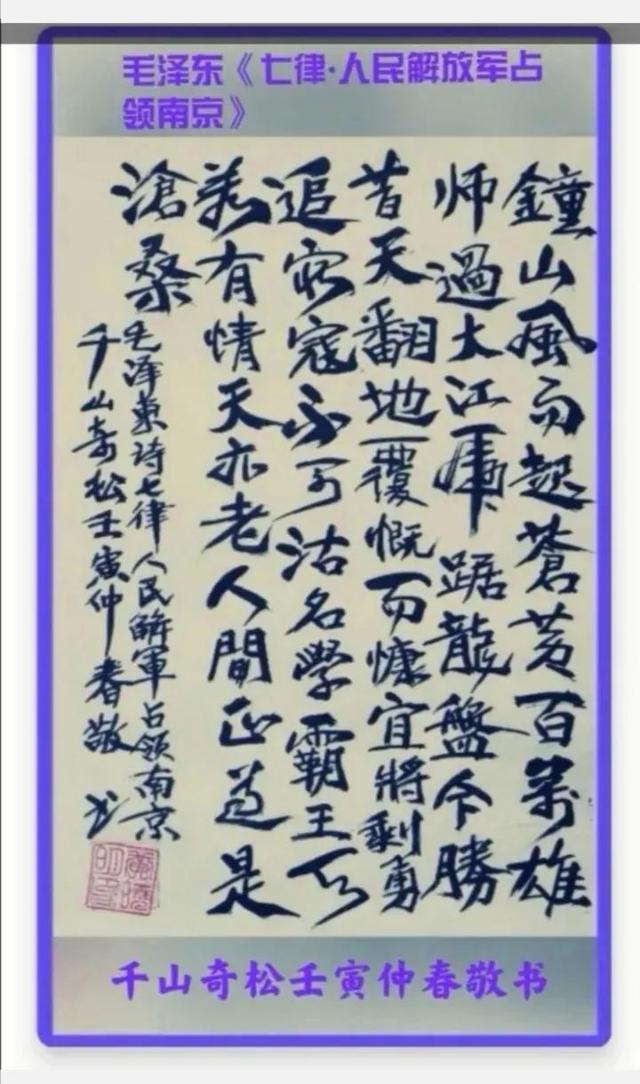 毛泽东《七律·人民解放军占
领南京》
鐘山風雨起蒼黄百萬雄
师過大江虎踞龍盤今勝
昔天翻地覆慨而慷宜將剩勇
追穷寇不可沽名學霸王天
若有情天亦老人間正道是
滄桑
毛泽東诗七律人民解軍占领南京
千山奇松壬寅仲春敬书
千山奇松壬寅仲春敬书